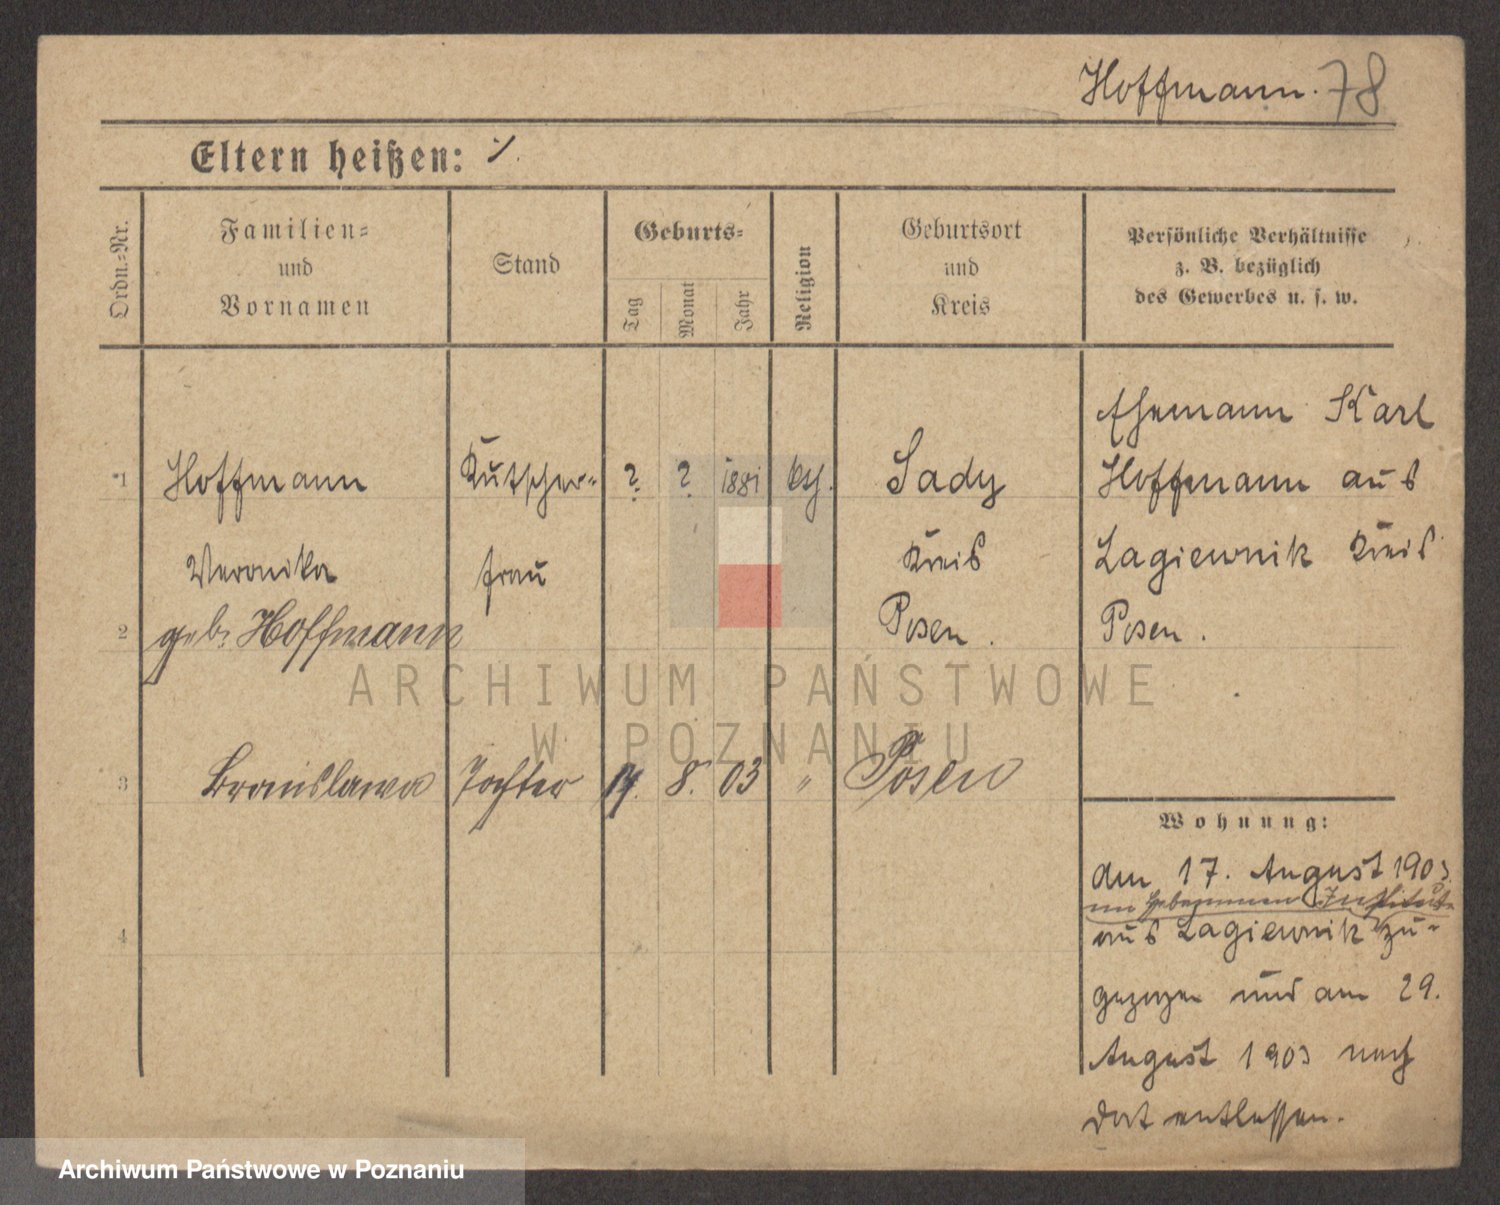 Hoffmann. 78
Eltern heißen: ⁒.
Ordn.=Nr.
Familien=
und
Vornamen
Stand
Geburts=
Tag
Monat
Jahr
Religion
Geburtsort
und
Kreis
Persönliche Verhältnisse
z. B. bezüglich
des Gewerbes u. s. w.
Ehemann Karl
1 Hoffmann Kutscher- ? ? 1881 kth. Sady Hoffmann aus
Veronika frau Kreis Lagiewnik Kreis
2 geb. Hoffmann Posen. Posen.
3 Bronislawa Tochter 19. 8. 03 " Posen
Wohnung:
am 17. August 1903
im Hebammen Institut
4 aus Lagiewnik zu-
gezogen und am 29.
August 1903 nach
dort entlassen.
ARCHIWUM PAŃSTWOWE
W POZNANIU
Archiwum Państwowe w Poznaniu